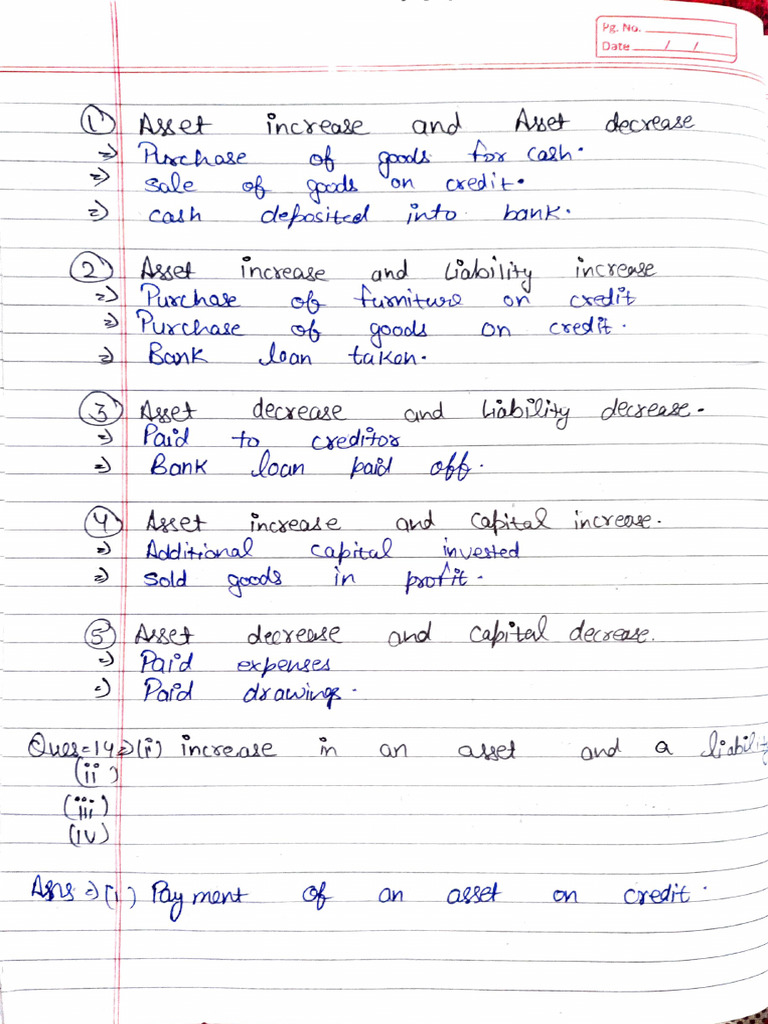 Pg. No.
Date / /
① Asset increase and Asset decrease
⇒ Purchase of goods for cash.
⇒ Sale of goods on credit.
⇒ cash deposited into bank.
② Asset increase and Liability increase
⇒ Purchase of furniture on credit
⇒ Purchase of goods on credit.
⇒ Bank loan taken.
③ Asset decrease and Liability decrease.
⇒ Paid to creditor
⇒ Bank loan paid off.
④ Asset increase and Capital increase.
⇒ Additional capital invested
⇒ Sold goods in profit.
⑤ Asset decrease and Capital decrease.
⇒ Paid expenses
⇒ Paid drawings.
Ques=14⇒(i) increase in an asset and a liability
(ii)
(iii)
(iv)
Ans⇒(i) Payment of an asset on credit.